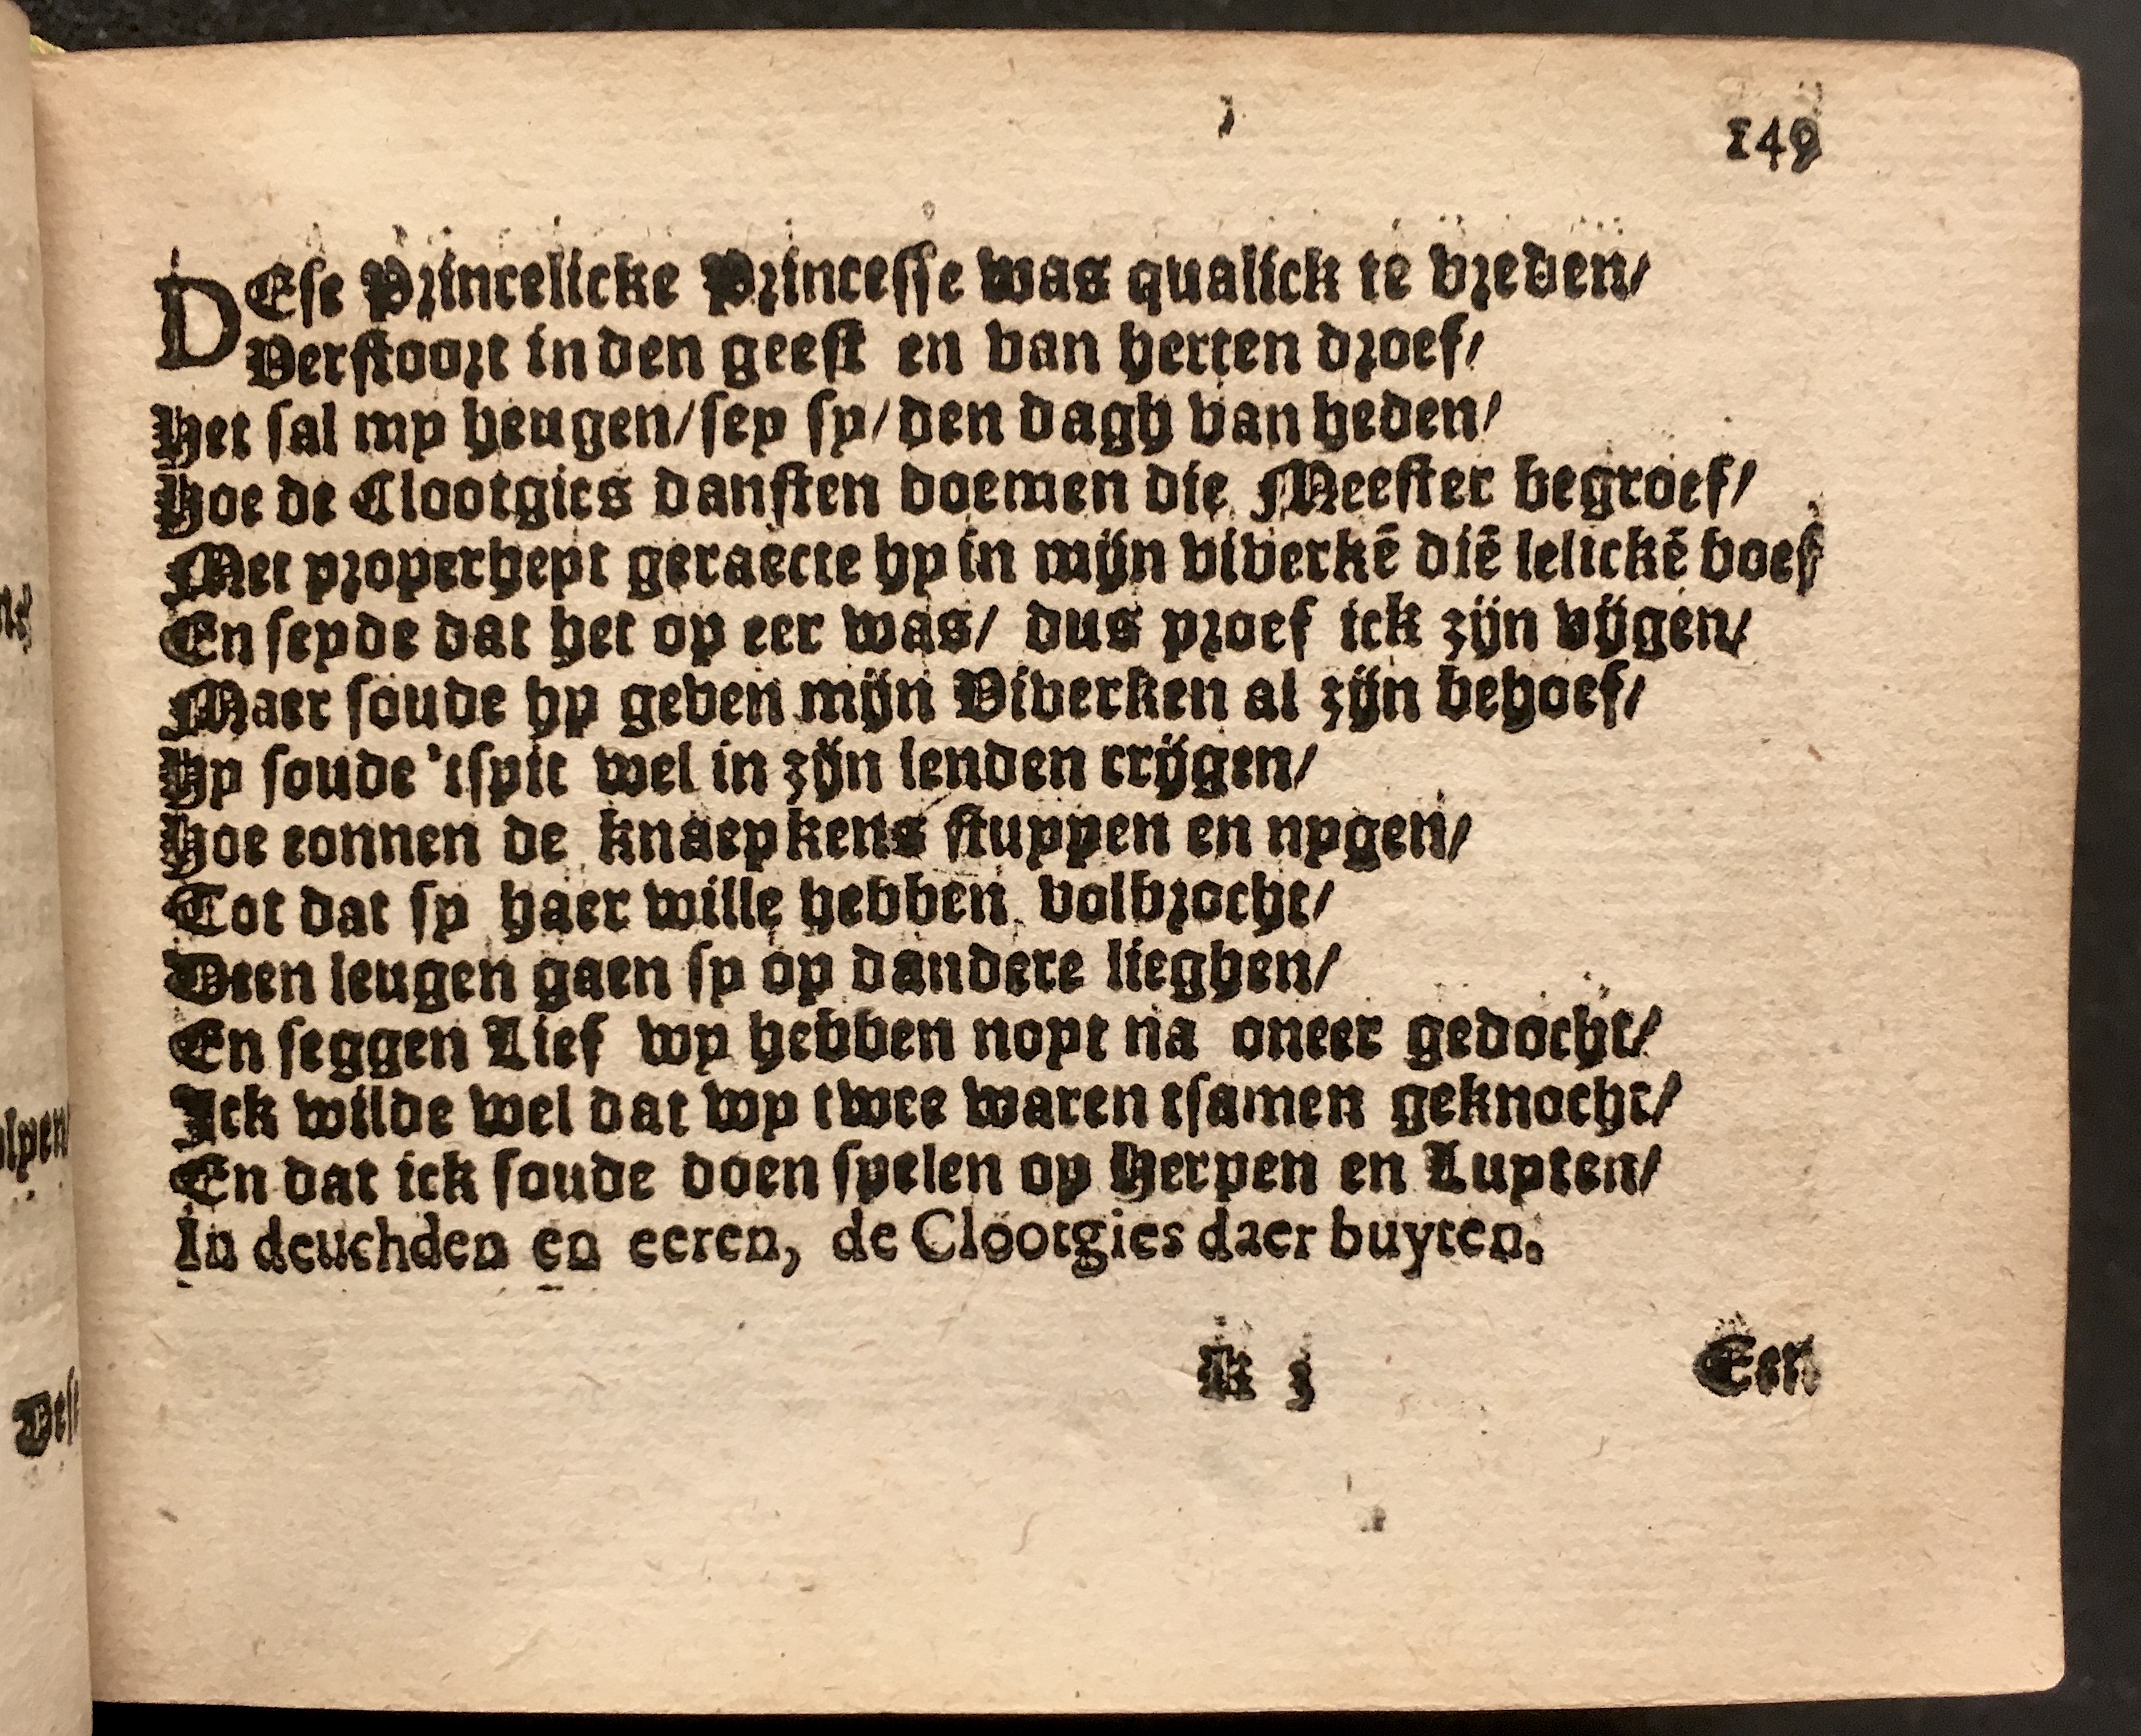 149
DEse Princelicke Princesse was qualick te vreden/
Verstoort in den geest en van herten droef/
Het sal my heugen/ sey sy/ den dagh van heden/
Hoe de Clootgies dansten doemen die Meester begroef/
Met properheyt geraecte hy in mijn viverkē diē lelickē boef
En seyde dat het op eer was/ dus proef ick zijn vijgen/
Maer soude hy geven mijn Viverken al zijn behoef/
Hy soude 'tspit wel in zijn lenden crijgen/
Hoe connen de knaepkens stuypen en nygen/
Tot dat sy haer wille hebben volbrocht/
Deen leugen gaen sy op dandere lieghen/
En seggen Lief wy hebben noyt na oneer gedocht/
Ick wilde wel dat wy twee waren tsamen geknocht/
En dat ick soude doen spelen op Herpen en Luyten/
In deuchden en eeren, de Clootgies daer buyten.
K 3 Een